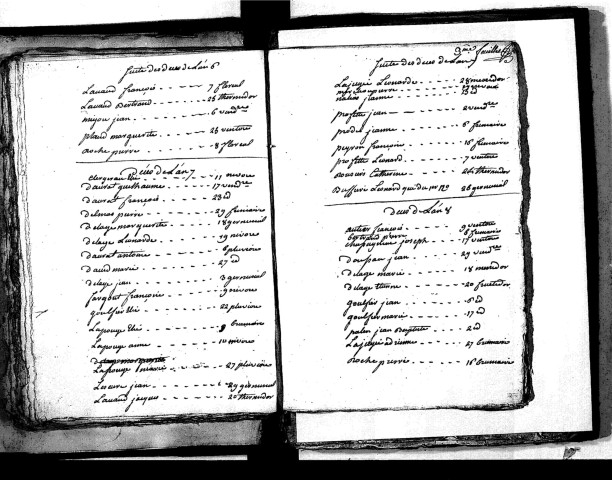 Suitte des deces de L'an 6
Lavaud françois - - - 7 floreal
Lavaud Bertrand - - - 28 thermidor
mijou jean - - - 6 vendre
pland marguerite - - - 28 ventose
Roche pierre - - - 8 floreal
Deces de L'an 7
clergeau - - - 11 nivose
Daurat guilhaume - - - 17 vendre
Daurat françois - - - 23 id
Delmas pierre - - - 29 frimaire
Delage marguerite - - - 18 germinal
Delage Leonarde - - - 19 nivose
Daurat antoine - - - 6 pluviose
Daud marie - - - 27 id
Delage jean - - - 3 germinal
fargout françoise - - - 9 nivose
goulfier - - - 22 pluviose
Lapouge - - - 8 brumaire
Lapouge anne - - - 10 nivose
Lapouge marie - - - 27 pluviose
Lescure jean - - - 29 germinal
Lavaud jacques - - - 20 thermidor
3me feuille
Suitte des deces de L'an 7
Lajugie Leonarde - - - 28 messidor
pierre
jeanne - - - id
profitte jean - - - 2 vendre
prodel jeanne - - - 6 frimaire
peyron françois - - - 16 frimaire
profitte Leonard - - - 7 ventose
Catherine - - - thermidor
Bussiere Leonard - - - 26 germinal
Deces de L'an 8
autier françois - - - 9 ventose
Bertrand pierre - - - 6 frimaire
joseph - - - 17 ventose
jean - - - 29 vendre
Delage marie - - - 18 messidor
Delage - - - 20 fructidor
goulfier jean - - - 6 id
goulfier marie - - - 17 id
patin jean Baptiste - - - 2 id
Lajugie - - - 27 brumaire
Roche pierre - - - 16 brumaire